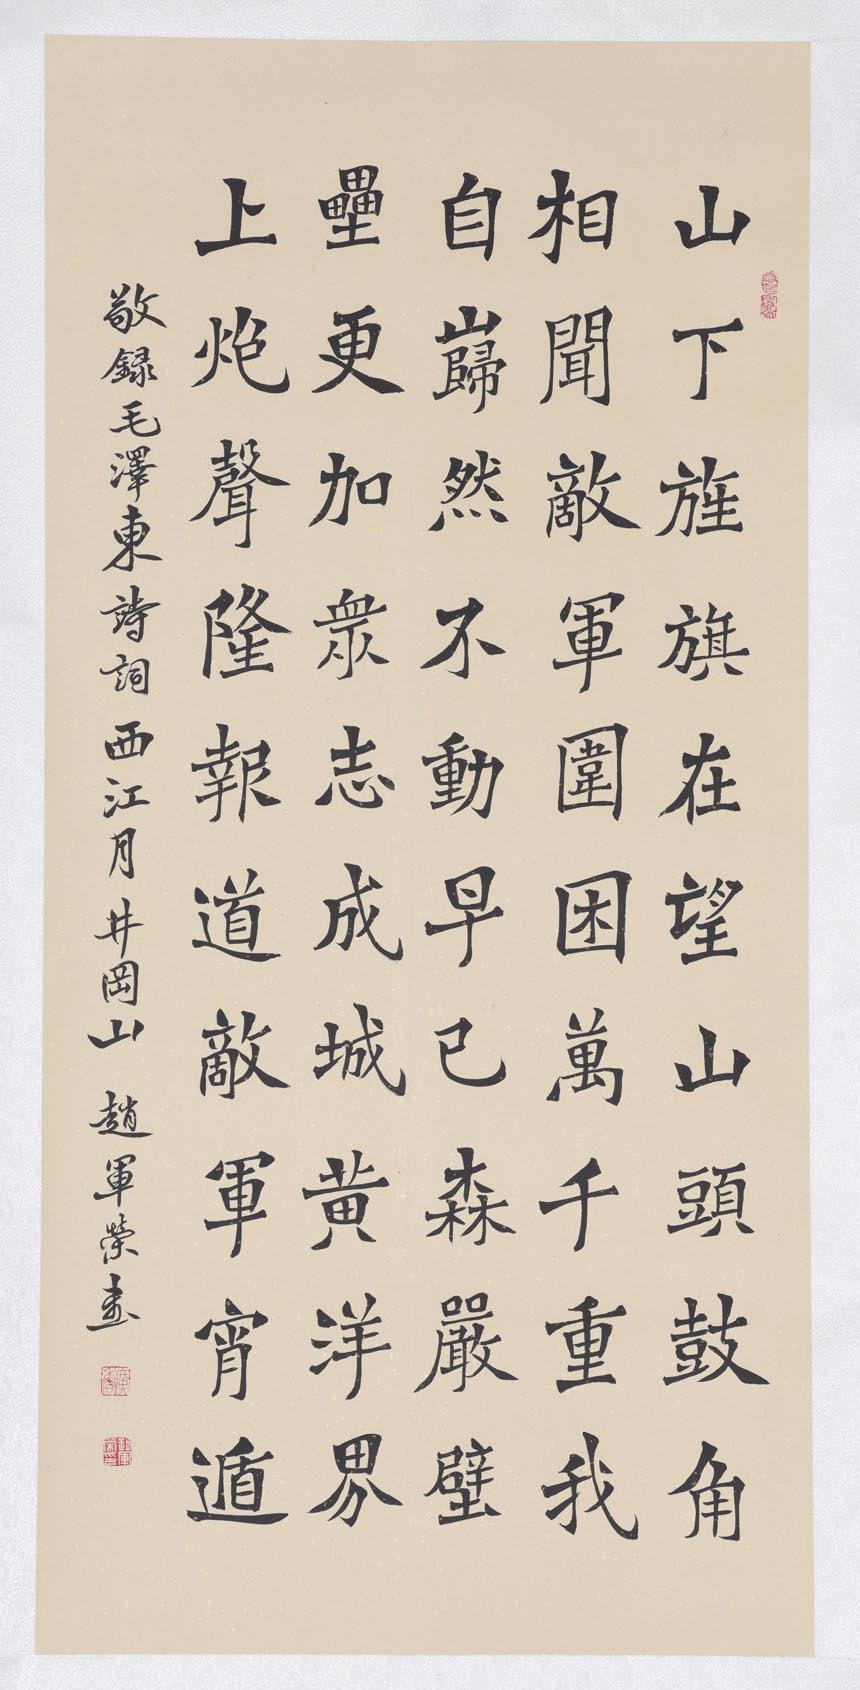 山下旌旗在望山頭鼓角
相聞敵軍圍困萬千重我
自巋然不動早已森嚴壁
壘更加衆志成城黄洋界
上炮聲隆報道敵軍宵遁
敬録毛澤東詩詞西江月井岡山 趙軍榮書